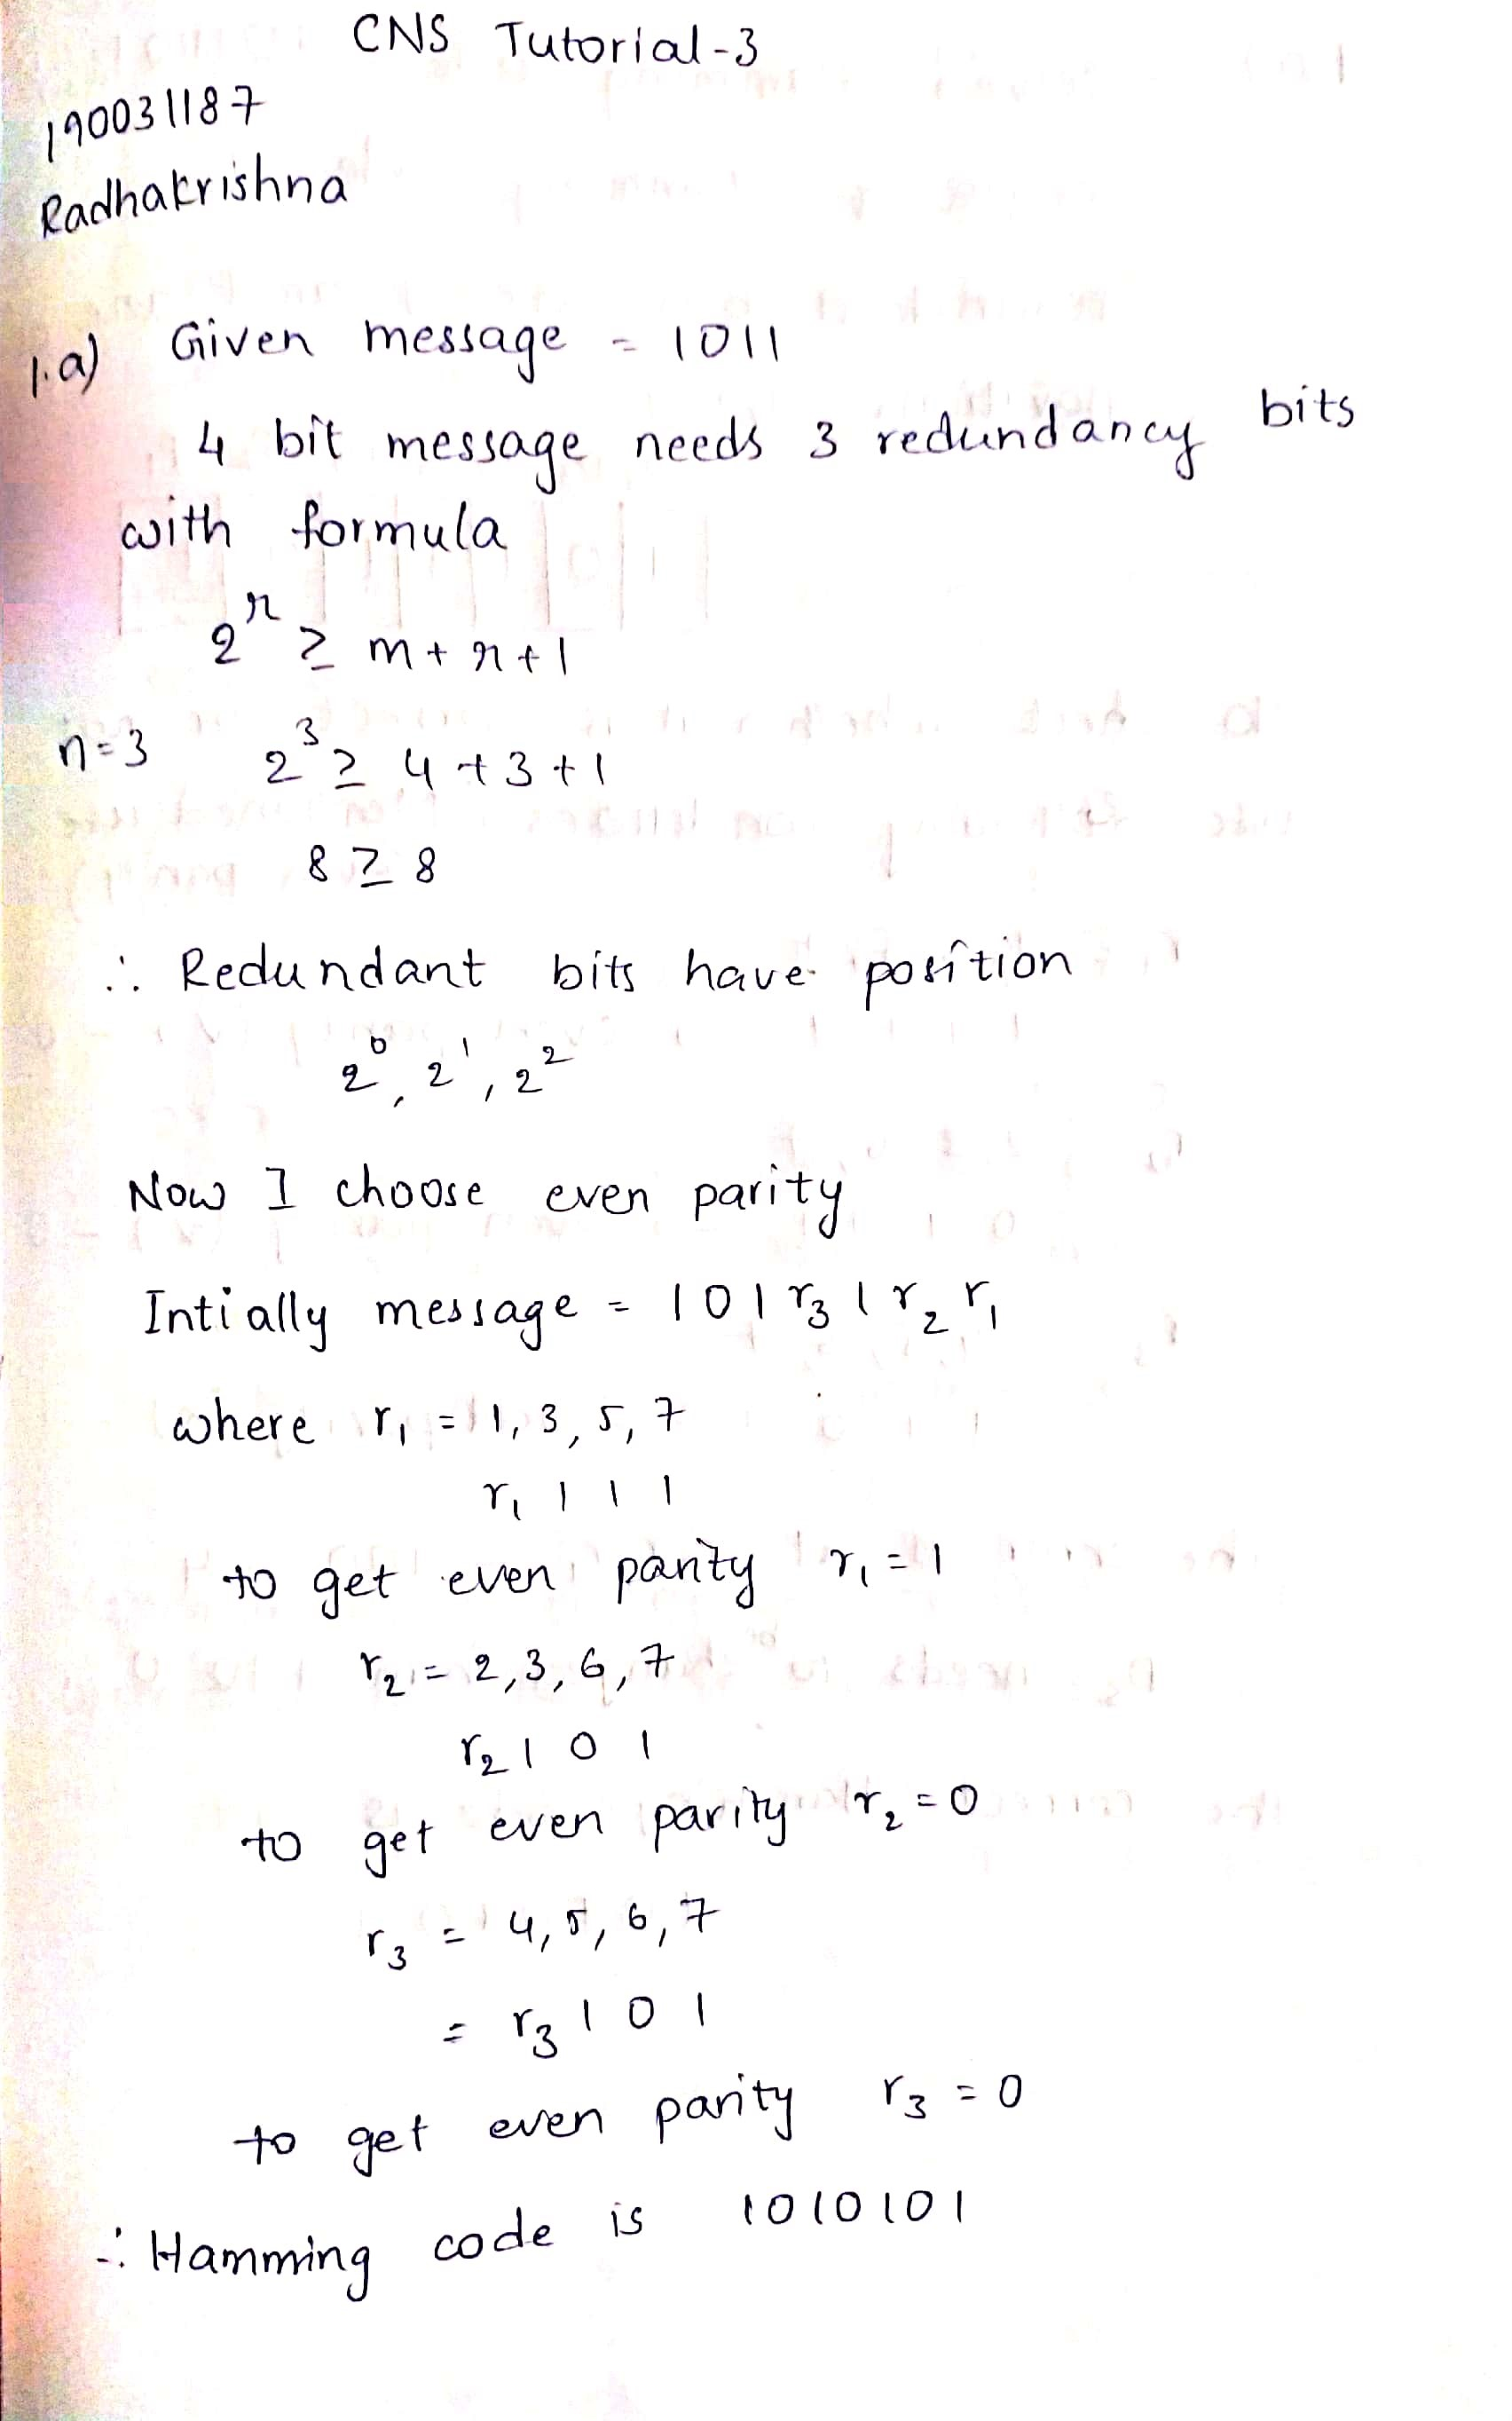 CNS Tutorial-3
190031187
Radhakrishna
1.a) Given message = 1011
4 bit message needs 3 redundancy bits
with formula
2^r ≥ m+r+1
n=3 2^3 ≥ 4+3+1
8 ≥ 8
∴ Redundant bits have position
2^0, 2^1, 2^2
Now I choose even parity
Intially message = 1 0 1 r3 1 r2 r1
where r1 = 1, 3, 5, 7
r1 1 1 1
to get even parity r1 = 1
r2 = 2, 3, 6, 7
r2 1 0 1
to get even parity r2 = 0
r3 = 4, 5, 6, 7
= r3 1 0 1
to get even parity r3 = 0
∴ Hamming code is 1010101